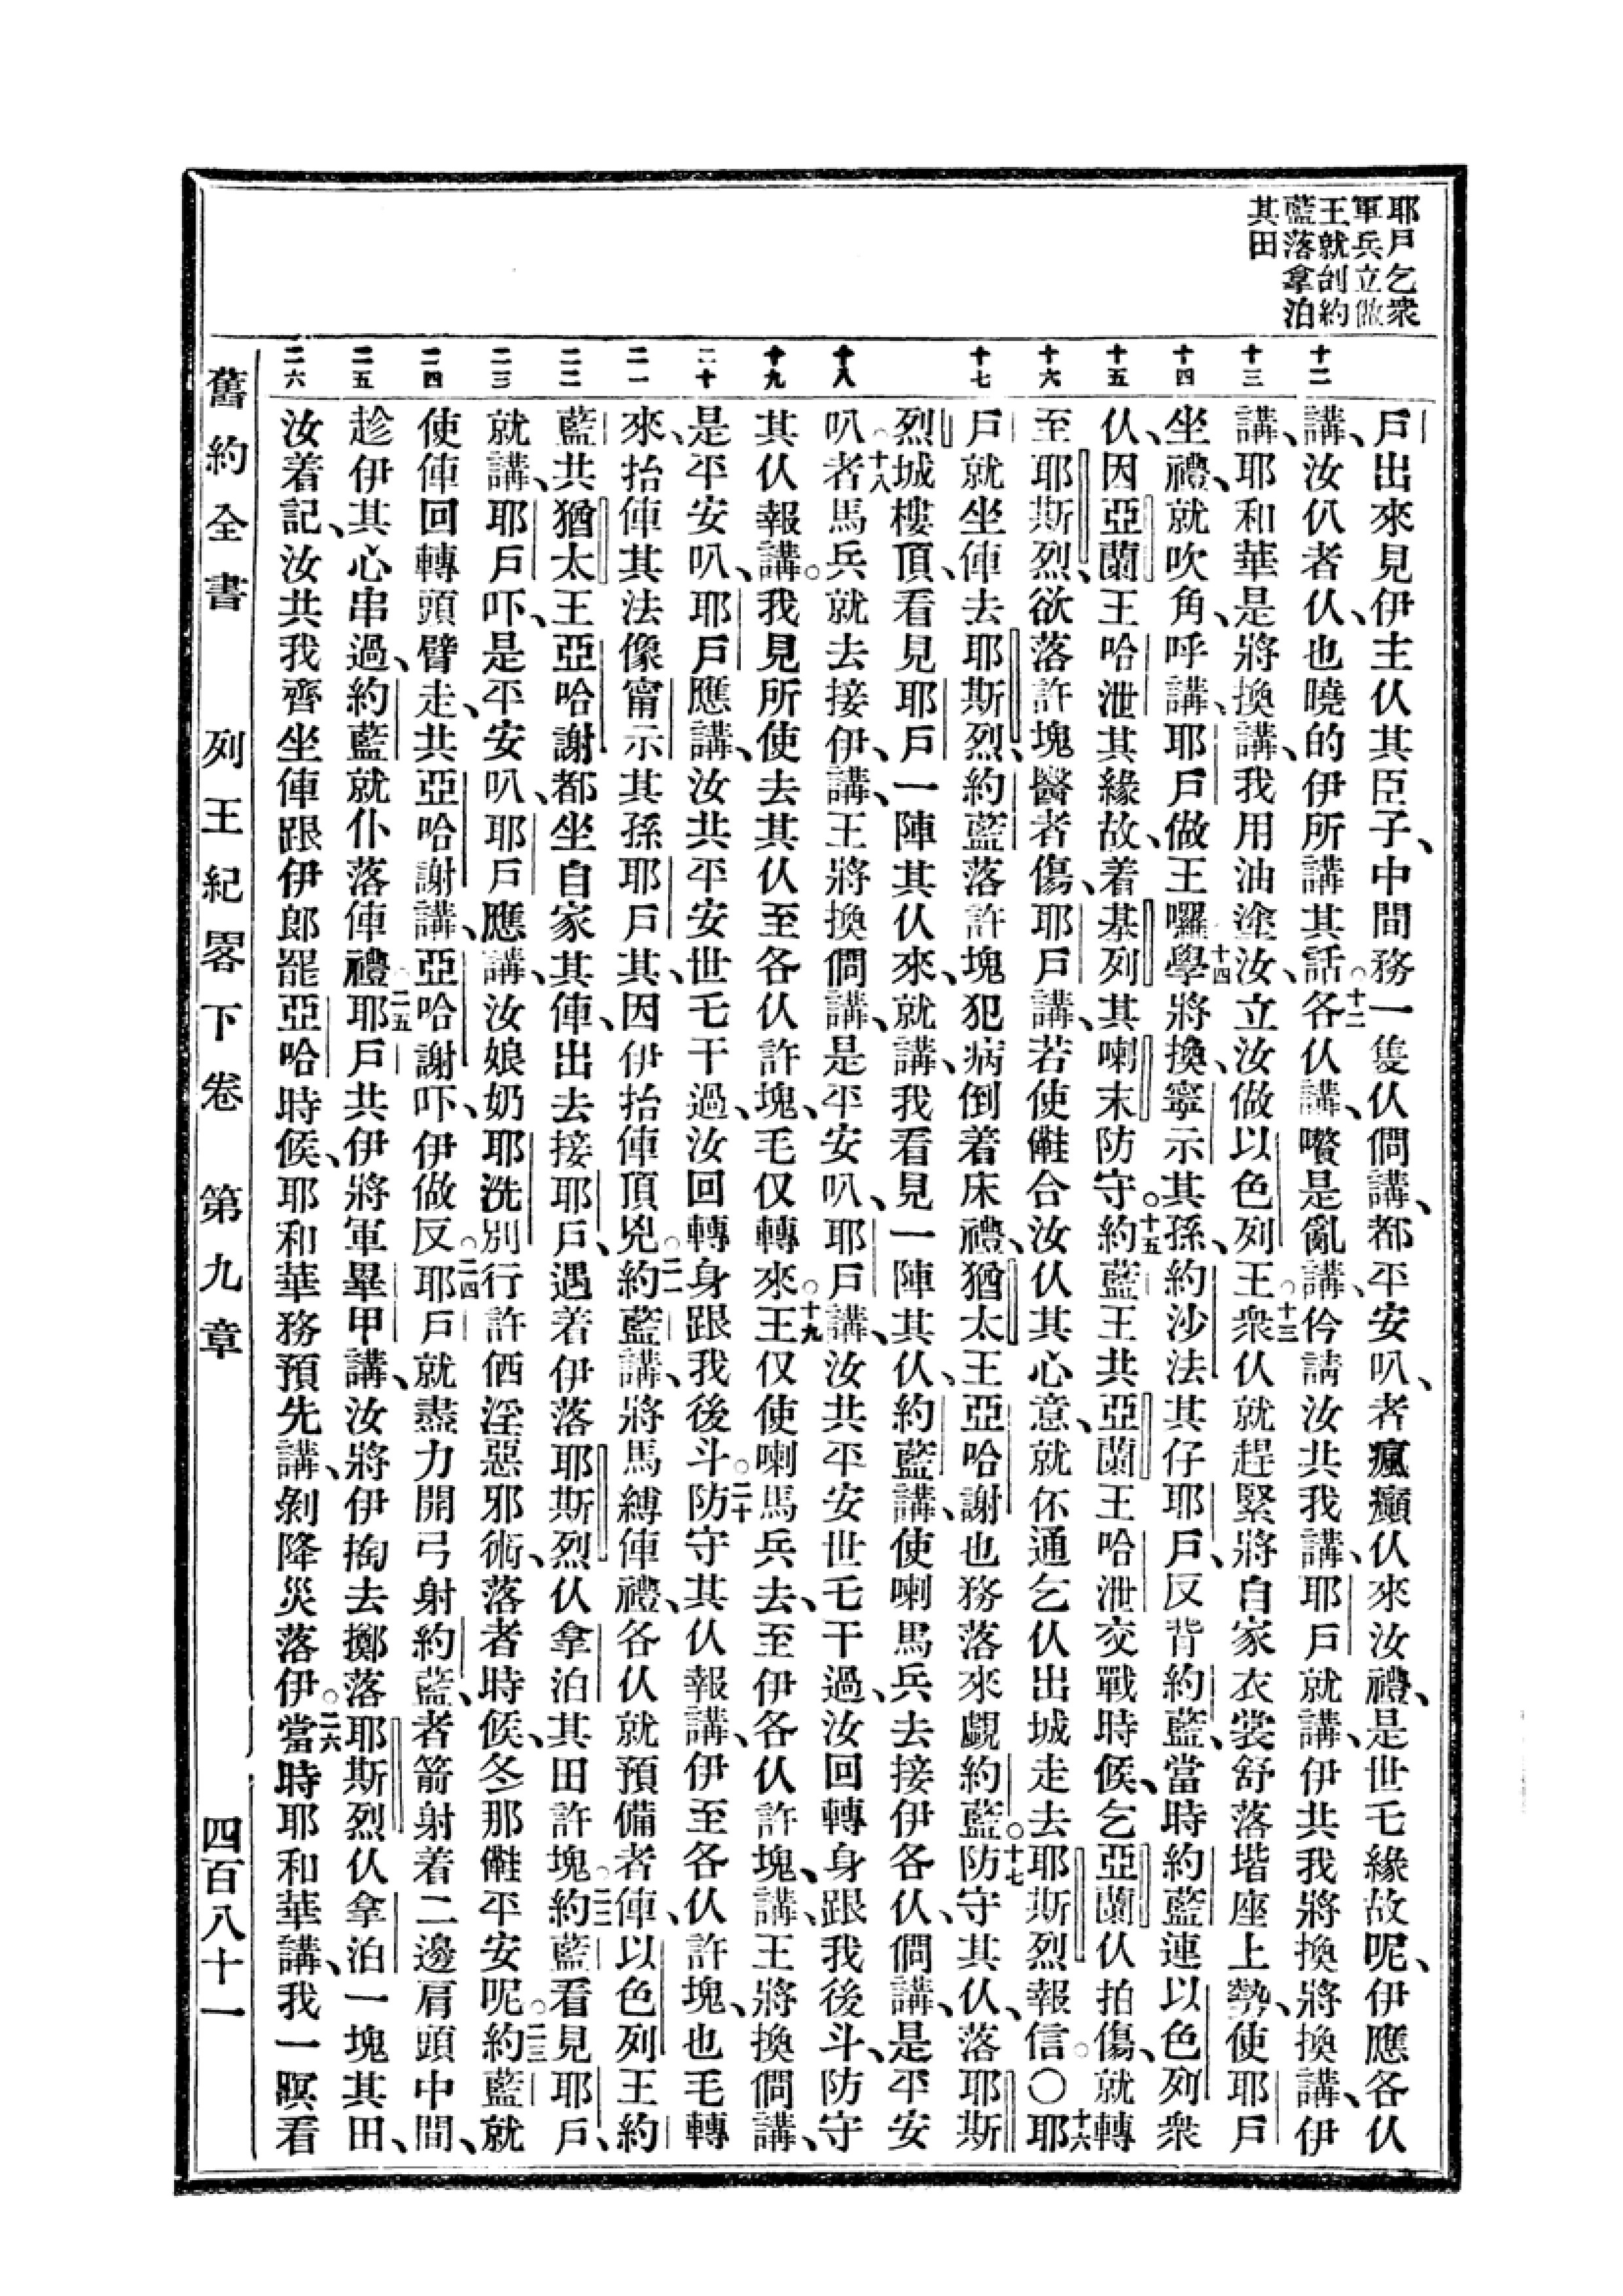 耶戶乞衆
軍兵立做
王就刣約
藍落拿泊
其田
戶出來見伊主仈其臣子、中間務一隻仈僩講、都平安叭、者瘋癲仈來汝禮、是世乇緣故呢、伊應各仈
十二
講、汝仈者仈、也曉的伊所講其話○十二各仈講、嚽是亂講、仱請汝共我講、耶戶就講、伊共我將換將換講、伊
十三
講、耶和華是將換講、我用油塗汝、立汝做以色列王○十三衆仈就趕緊將自家衣裳舒落堦座上勢、使耶戶
十四
坐禮、就吹角、呼講、耶戶做王囉○十四學將換、寧示其孫、約沙法其仔耶戶、反背約藍、當時約藍連以色列衆
十五
仈、因亞蘭王哈泄其緣故、着基列其喇末防守○十五約藍王共亞蘭王哈泄交戰時候、乞亞蘭仈拍傷、就轉
十六
至耶斯烈、欲落許塊醫者傷、耶戶講、若使儺合汝仈其心意、就伓通乞仈出城走去耶斯烈報信○〇十六耶
十七
戶就坐俥去耶斯烈、約藍落許塊犯病倒着床禮、猶太王亞哈謝也務落來覷約藍○十七防守其仈、落耶斯
烈城樓頂、看見耶戶一陣其仈來、就講、我看見一陣其仈、約藍講、使喇馬兵去接伊各仈、僩講、是平安
十八
叭○十八者馬兵就去接伊、講、王將換僩講、是平安叭、耶戶講、汝共平安世乇干過、汝回轉身跟我後斗、防守
十九
其仈報講○我見所使去其仈至各仈許塊、毛仅轉來○十九王仅使喇馬兵去、至伊各仈許塊、講、王將換僩講、
二十
是平安叭、耶戶應講、汝共平安世乇干過、汝回轉身跟我後斗○二十防守其仈報講、伊至各仈許塊、也毛轉
二一
來、抬俥其法像甯示其孫耶戶其、因伊抬俥頂兇○二一約藍講、將馬縛俥禮、各仈就預備者俥、以色列王約
二二
藍共猶太王亞哈謝都坐自家其俥、出去接耶戶、遇着伊落耶斯烈仈拿泊其田許塊○二二約藍看見耶戶、
二三
就講、耶戶吓、是平安叭、耶戶應講、汝娘奶耶洗別行許価淫惡邪術、落者時候、冬那儺平安呢○二三約藍就
二四
使俥回轉頭臂走、共亞哈謝講、亞哈謝吓、伊做反○二四耶戶就盡力開弓射約藍、者箭射着二邊肩頭中間、
二五
趁伊其心串過、約藍就仆落俥禮○二五耶戶共伊將軍畢甲講、汝將伊掏去擲落耶斯烈仈拿泊一塊其田、
二六
汝着記、汝共我齊坐俥跟伊郎罷亞哈時候、耶和華務預先講、剝降災落伊○二六當時耶和華講、我一暝看
舊約全書 列王紀畧下卷 第九章 四百八十一